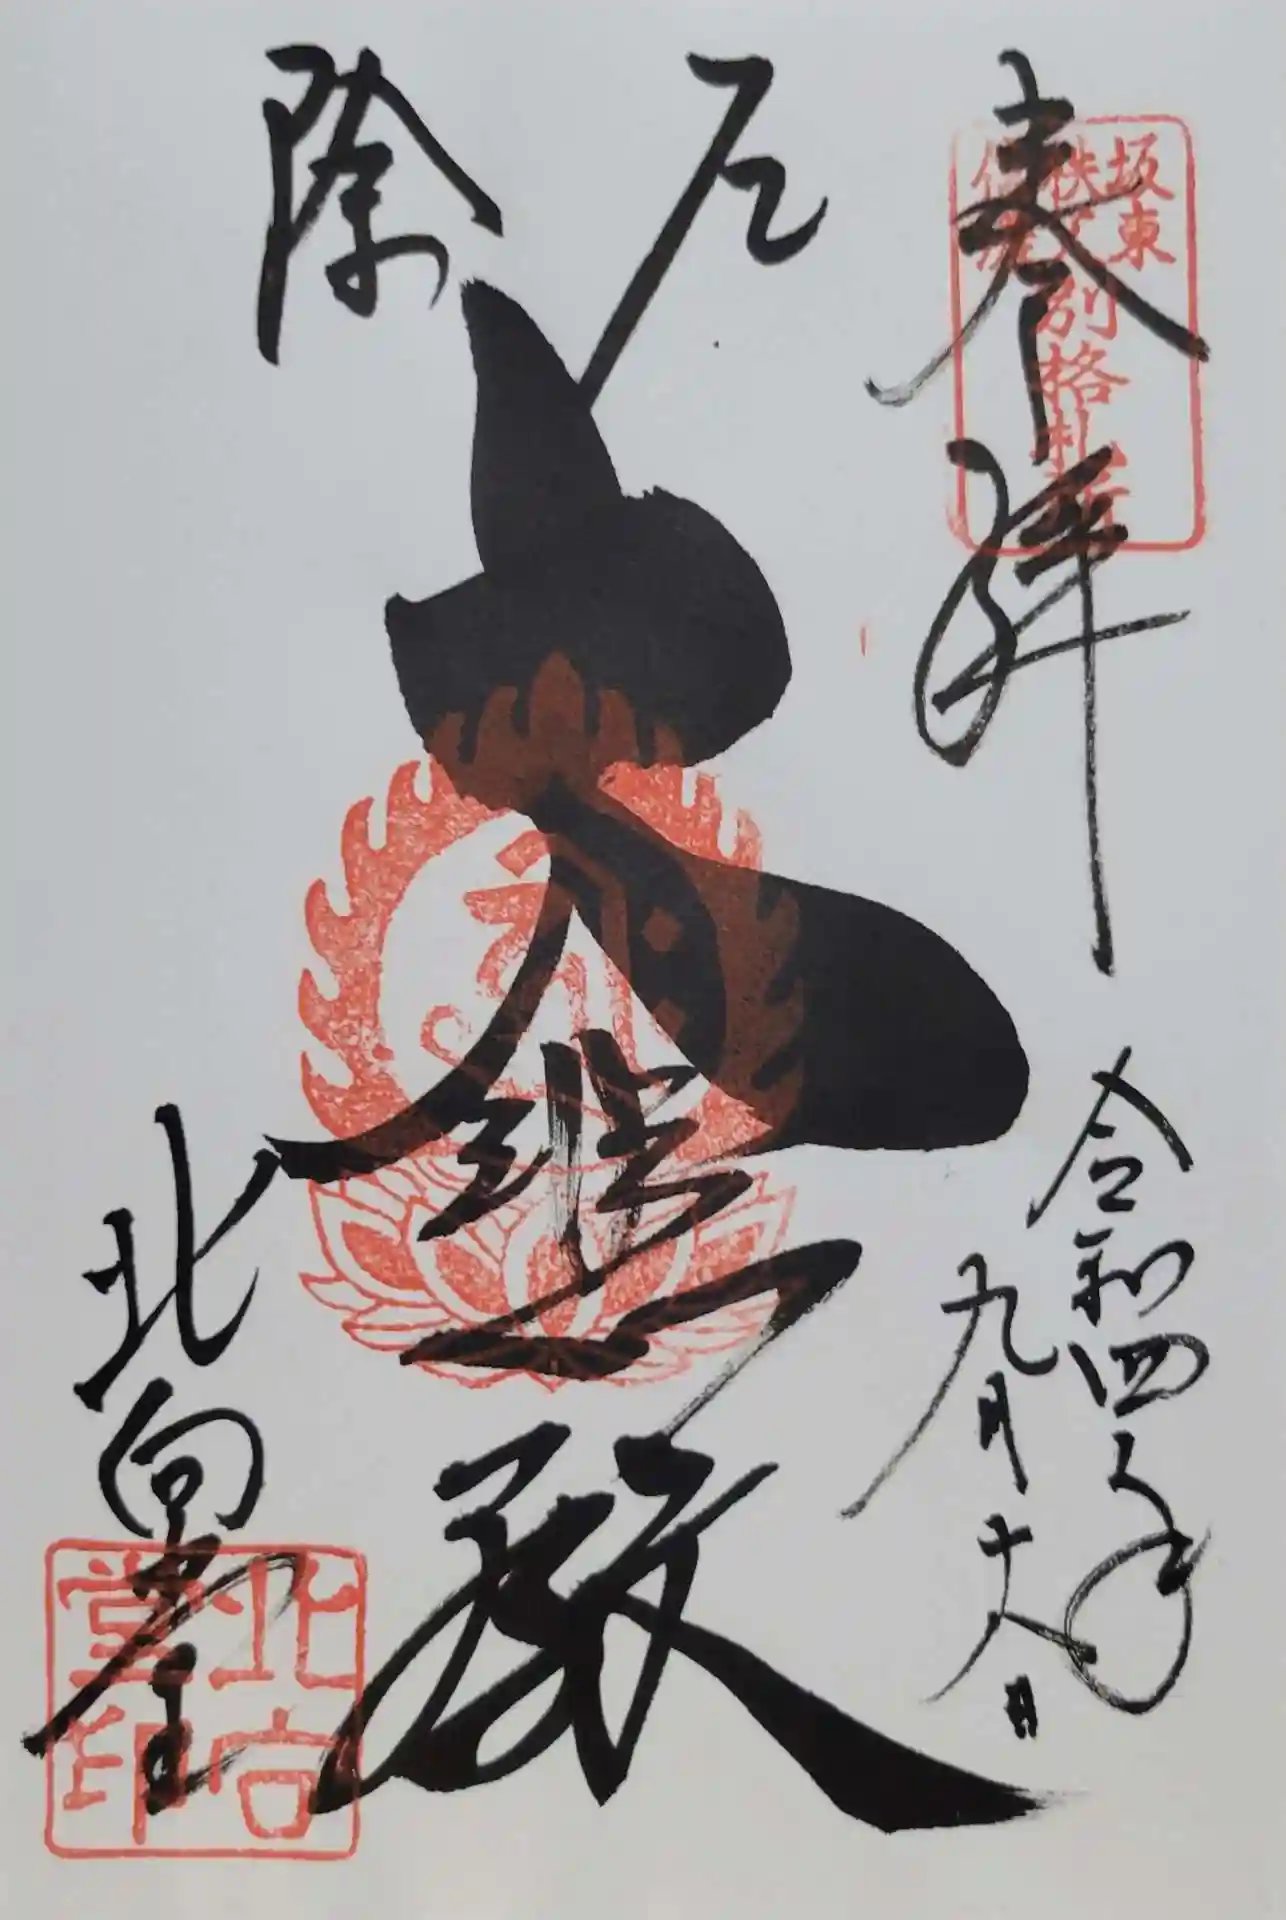 奉拝
坂東
秩父
別格札所
令和四年
九月十八日
厄除
大悲殿
北向堂
北向堂印